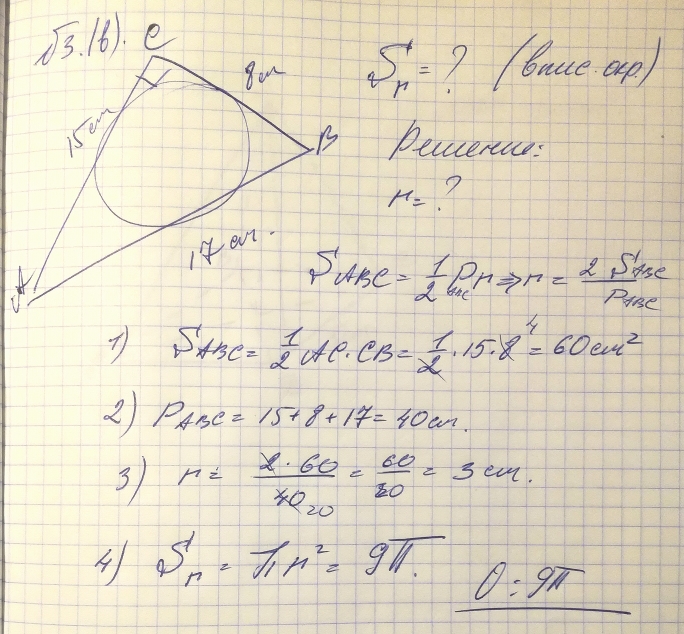 √3.(в).
C
8см
15см
B
17см.
A
Sr = ? (впис. окр.)
Решение:
r = ?
S ABC = 1/2 P ABC r ⇒ r = 2 S ABC / P ABC
1) S ABC = 1/2 AC · CB = 1/2 · 15 · 8 4 = 60 см²
2) P ABC = 15 + 8 + 17 = 40 см.
3) r = 2 · 60 / 40 20 = 60 / 20 = 3 см.
4) Sr = πr² = 9π.
O: 9π